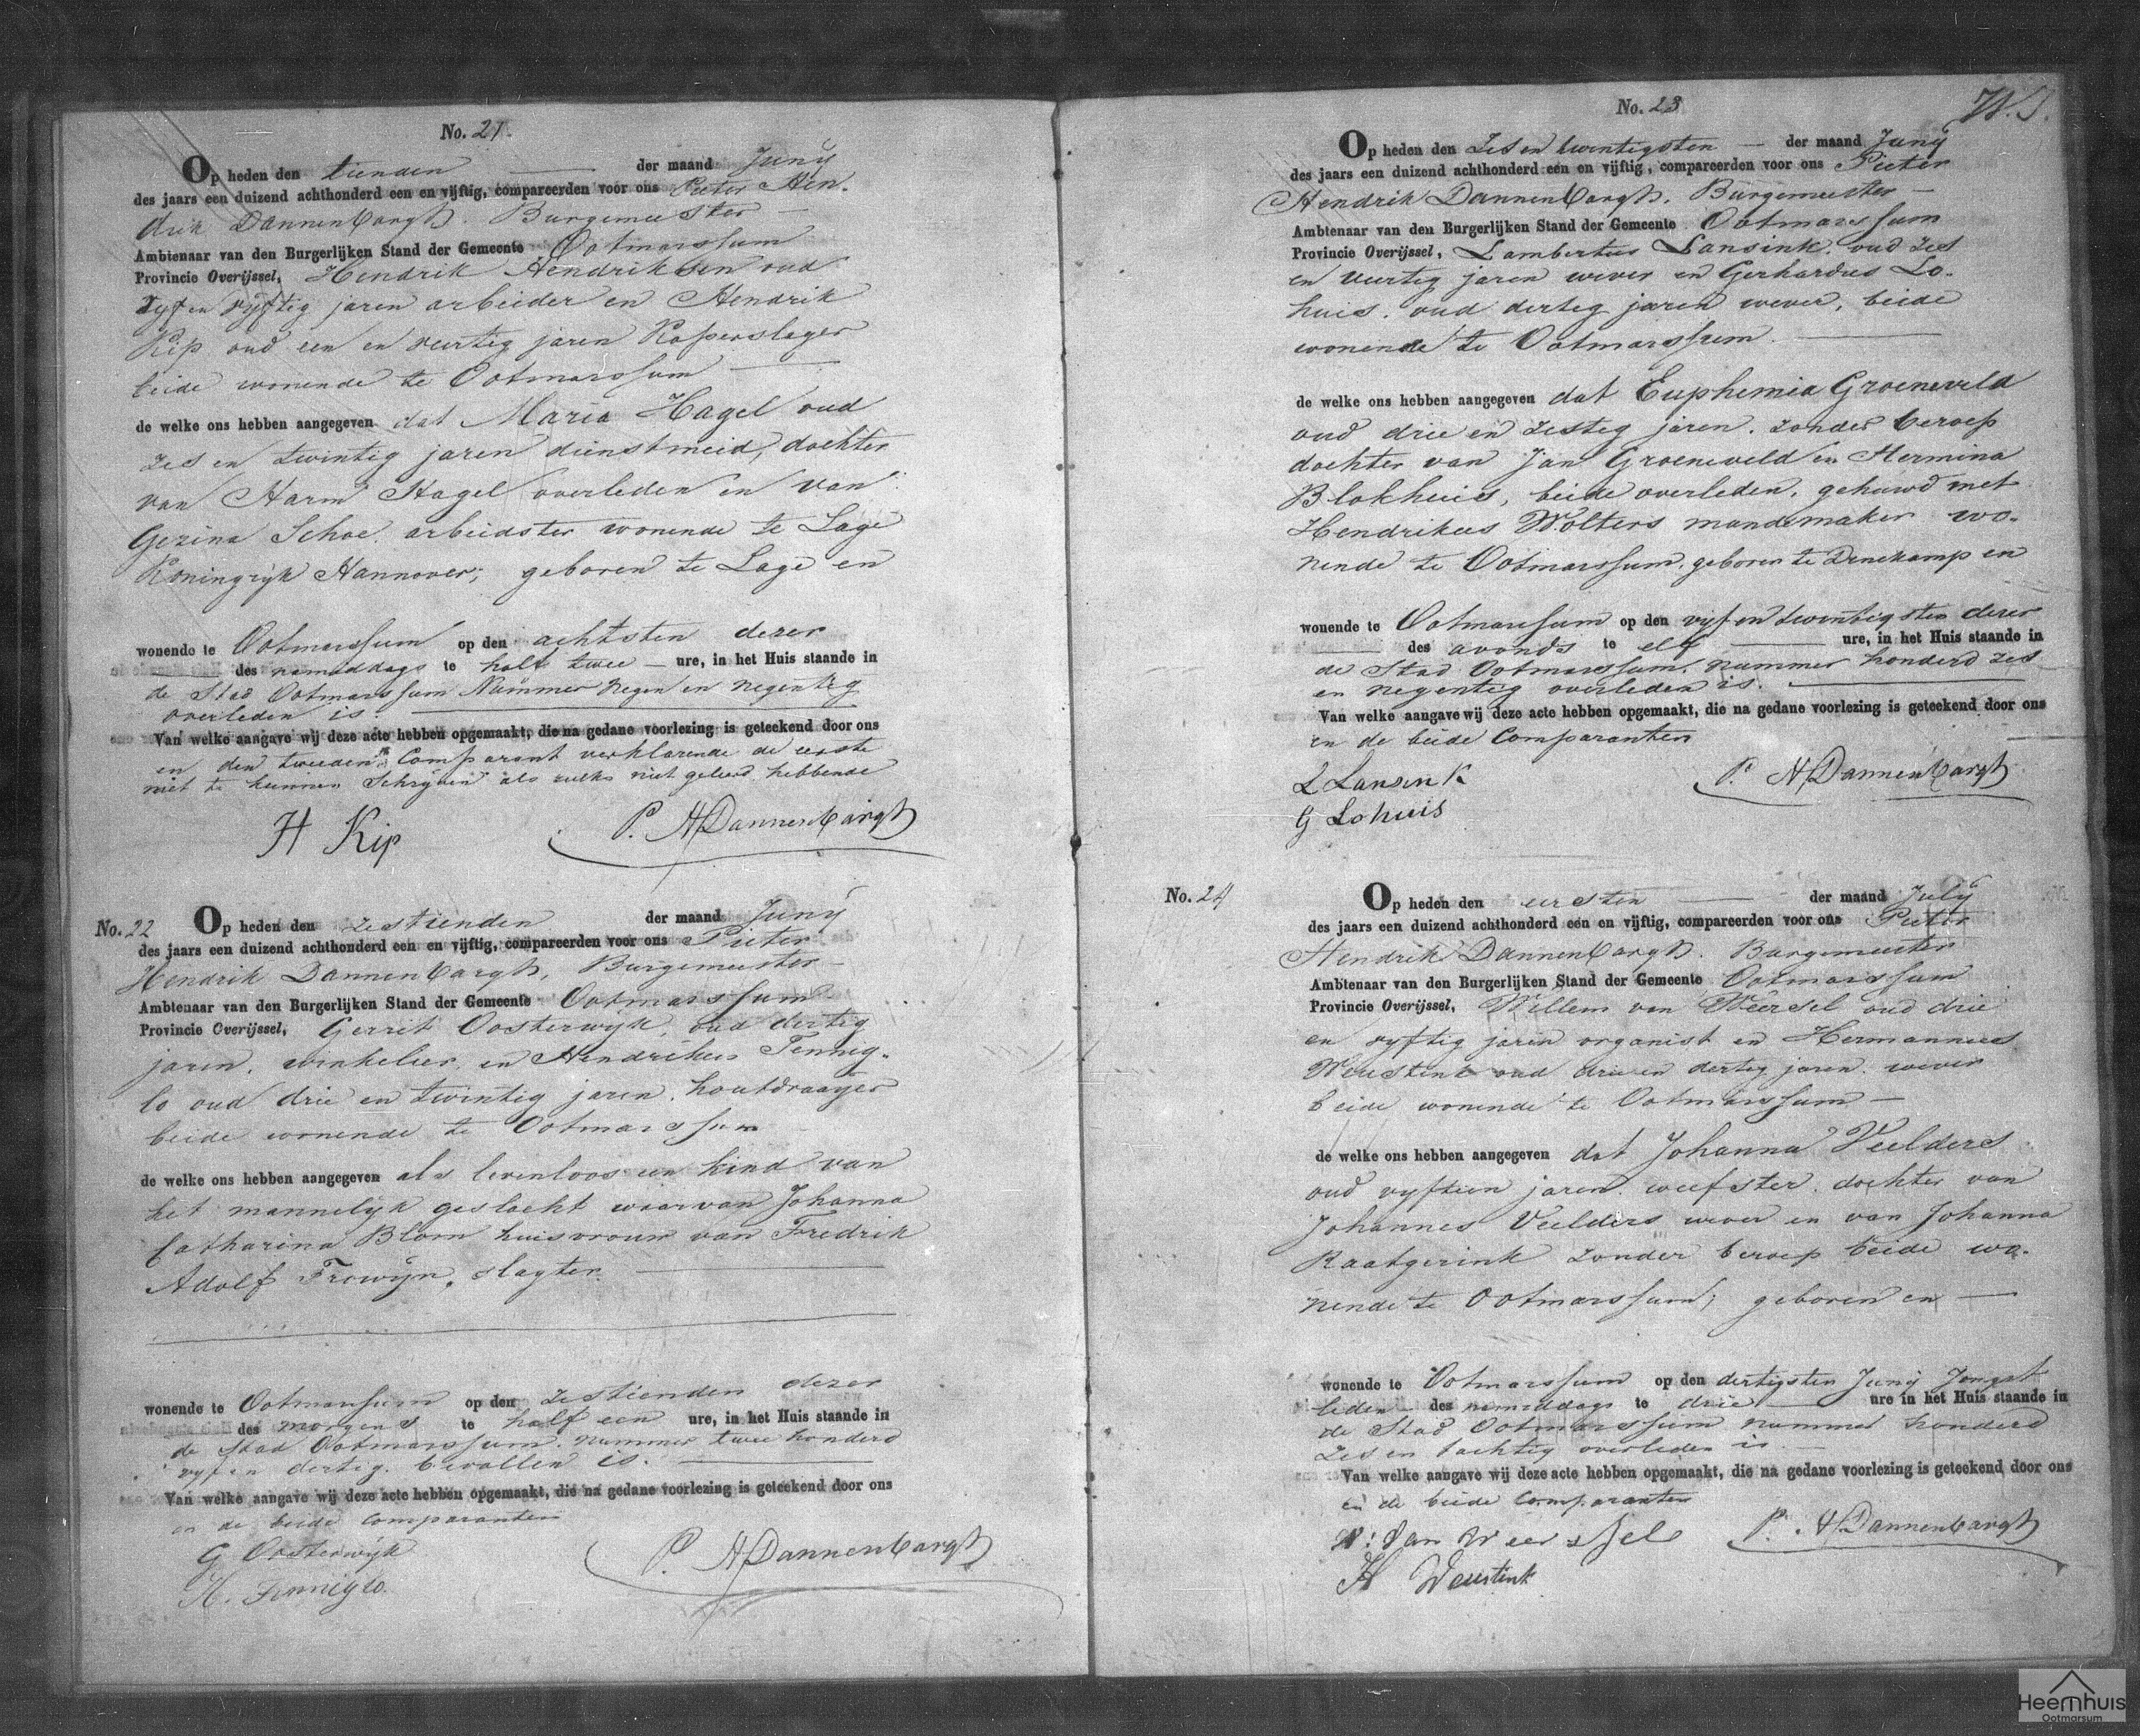 No. 21.
Op heden den tienden der maand Junij
des jaars een duizend achthonderd een en vijftig, compareerden voor ons Pieter Hen-
drik Dannenbargh. Burgemeester
Ambtenaar van den Burgerlijken Stand der Gemeente Ootmarssum
Provincie Overijssel, Hendrik Hendriksen oud
vyf en vyftig jaren arbeider en Hendrik
Kip oud een en veertig jaren Koperslager
beide wonende te Ootmarssum
de welke ons hebben aangegeven dat Maria Hagel oud
zes en twintig jaren dienstmeid, dochter
van Harm Hagel overleden en van
Gezina Schoe arbeidster wonende te Lage
Koningryk Hannover; geboren te Lage en
wonende te Ootmarssum op den achtsten dezer
des namiddags te half twee ure, in het Huis staande in
de Stad Ootmarssum Nummer negen en negentig
overleden is.
Van welke aangave wij deze acte hebben opgemaakt, die na gedane voorlezing is geteekend door ons
en den tweeden Comparant verklarende de eerste
niet te kunnen Schryven als zulks niet geleerd hebbende
H Kip P. H Dannenbargh
No. 22 Op heden den zestienden der maand Junij
des jaars een duizend achthonderd een en vijftig, compareerden voor ons Pieter
Hendrik Dannenbargh, Burgemeester
Ambtenaar van den Burgerlijken Stand der Gemeente Ootmarssum
Provincie Overijssel, Gerrit Oosterwyk, oud dertig
jaren, winkelier, en Hendrikus Tennig-
lo oud drie en twintig jaren, houtdraayer
beide wonende te Ootmarssum
de welke ons hebben aangegeven als levenloos een kind van
het mannelyk geslacht waarvan Johanna
Catharina Blom huisvrouw van Fredrik
Adolf Frowyn, slagter.
wonende te Ootmarssum op den zestienden dezer
des morgens te half een ure, in het Huis staande in
de Stad Ootmarssum. nummer twee honderd
vyf en dertig. bevallen is.
Van welke aangave wij deze acte hebben opgemaakt, die na gedane voorlezing is geteekend door ons
en de beide Comparanten
G Oosterwijk P. H Dannenbargh
H. Tenniglo.
No. 23
Op heden den Zes en twintigsten der maand Junij
des jaars een duizend achthonderd een en vijftig, compareerden voor ons Pieter
Hendrik Dannenbargh. Burgemeester
Ambtenaar van den Burgerlijken Stand der Gemeente Ootmarssum
Provincie Overijssel, Lambertus Lansink. oud zes
en veertig jaren wever en Gerhardus Lo-
huis. oud dertig jaren wever, beide
wonende te Ootmarssum.
de welke ons hebben aangegeven dat Euphemia Groeneveld
oud drie en zestig jaren. zonder beroep
dochter van Jan Groeneveld en Hermina
Blokhuis, beide overleden, gehuwd met
Hendrikus Wolters mandemaker wo-
nende te Ootmarssum, geboren te Denekamp en
wonende te Ootmarssum op den vyf en twintigsten dezer
des avonds te elf ure, in het Huis staande in
de Stad Ootmarssum. nummer honderd zes
en negentig overleden is.
Van welke aangave wij deze acte hebben opgemaakt, die na gedane voorlezing is geteekend door ons
en de beide Comparanten
L Lansink P. H Dannenbargh
G Lohuis
No. 24 Op heden den eersten der maand July
des jaars een duizend achthonderd een en vijftig, compareerden voor ons Pieter
Hendrik Dannenbargh. Burgemeester
Ambtenaar van den Burgerlijken Stand der Gemeente Ootmarssum
Provincie Overijssel, Willem van Weersel oud drie
en vyftig jaren organist en Hermannus
Weustink oud drie en dertig jaren. wever
beide wonende te Ootmarssum
de welke ons hebben aangegeven dat Johanna Veelders
oud vyftien jaren. weefster. dochter van
Johannes Veelders wever en van Johanna
Raatgerink zonder beroep beide wo-
nende te Ootmarssum; geboren en
wonende te Ootmarssum op den dertigsten Junij Jongst
leden des namiddags te drie ure in het Huis staande in
de Stad Ootmarssum nummer honderd
zes en tachtig overleden is.
Van welke aangave wij deze acte hebben opgemaakt, die na gedane voorlezing is geteekend door ons
en de beide Comparanten
W: van Weerssel P. H Dannenbargh
H Weustink
Heemhuis
Ootmarsum